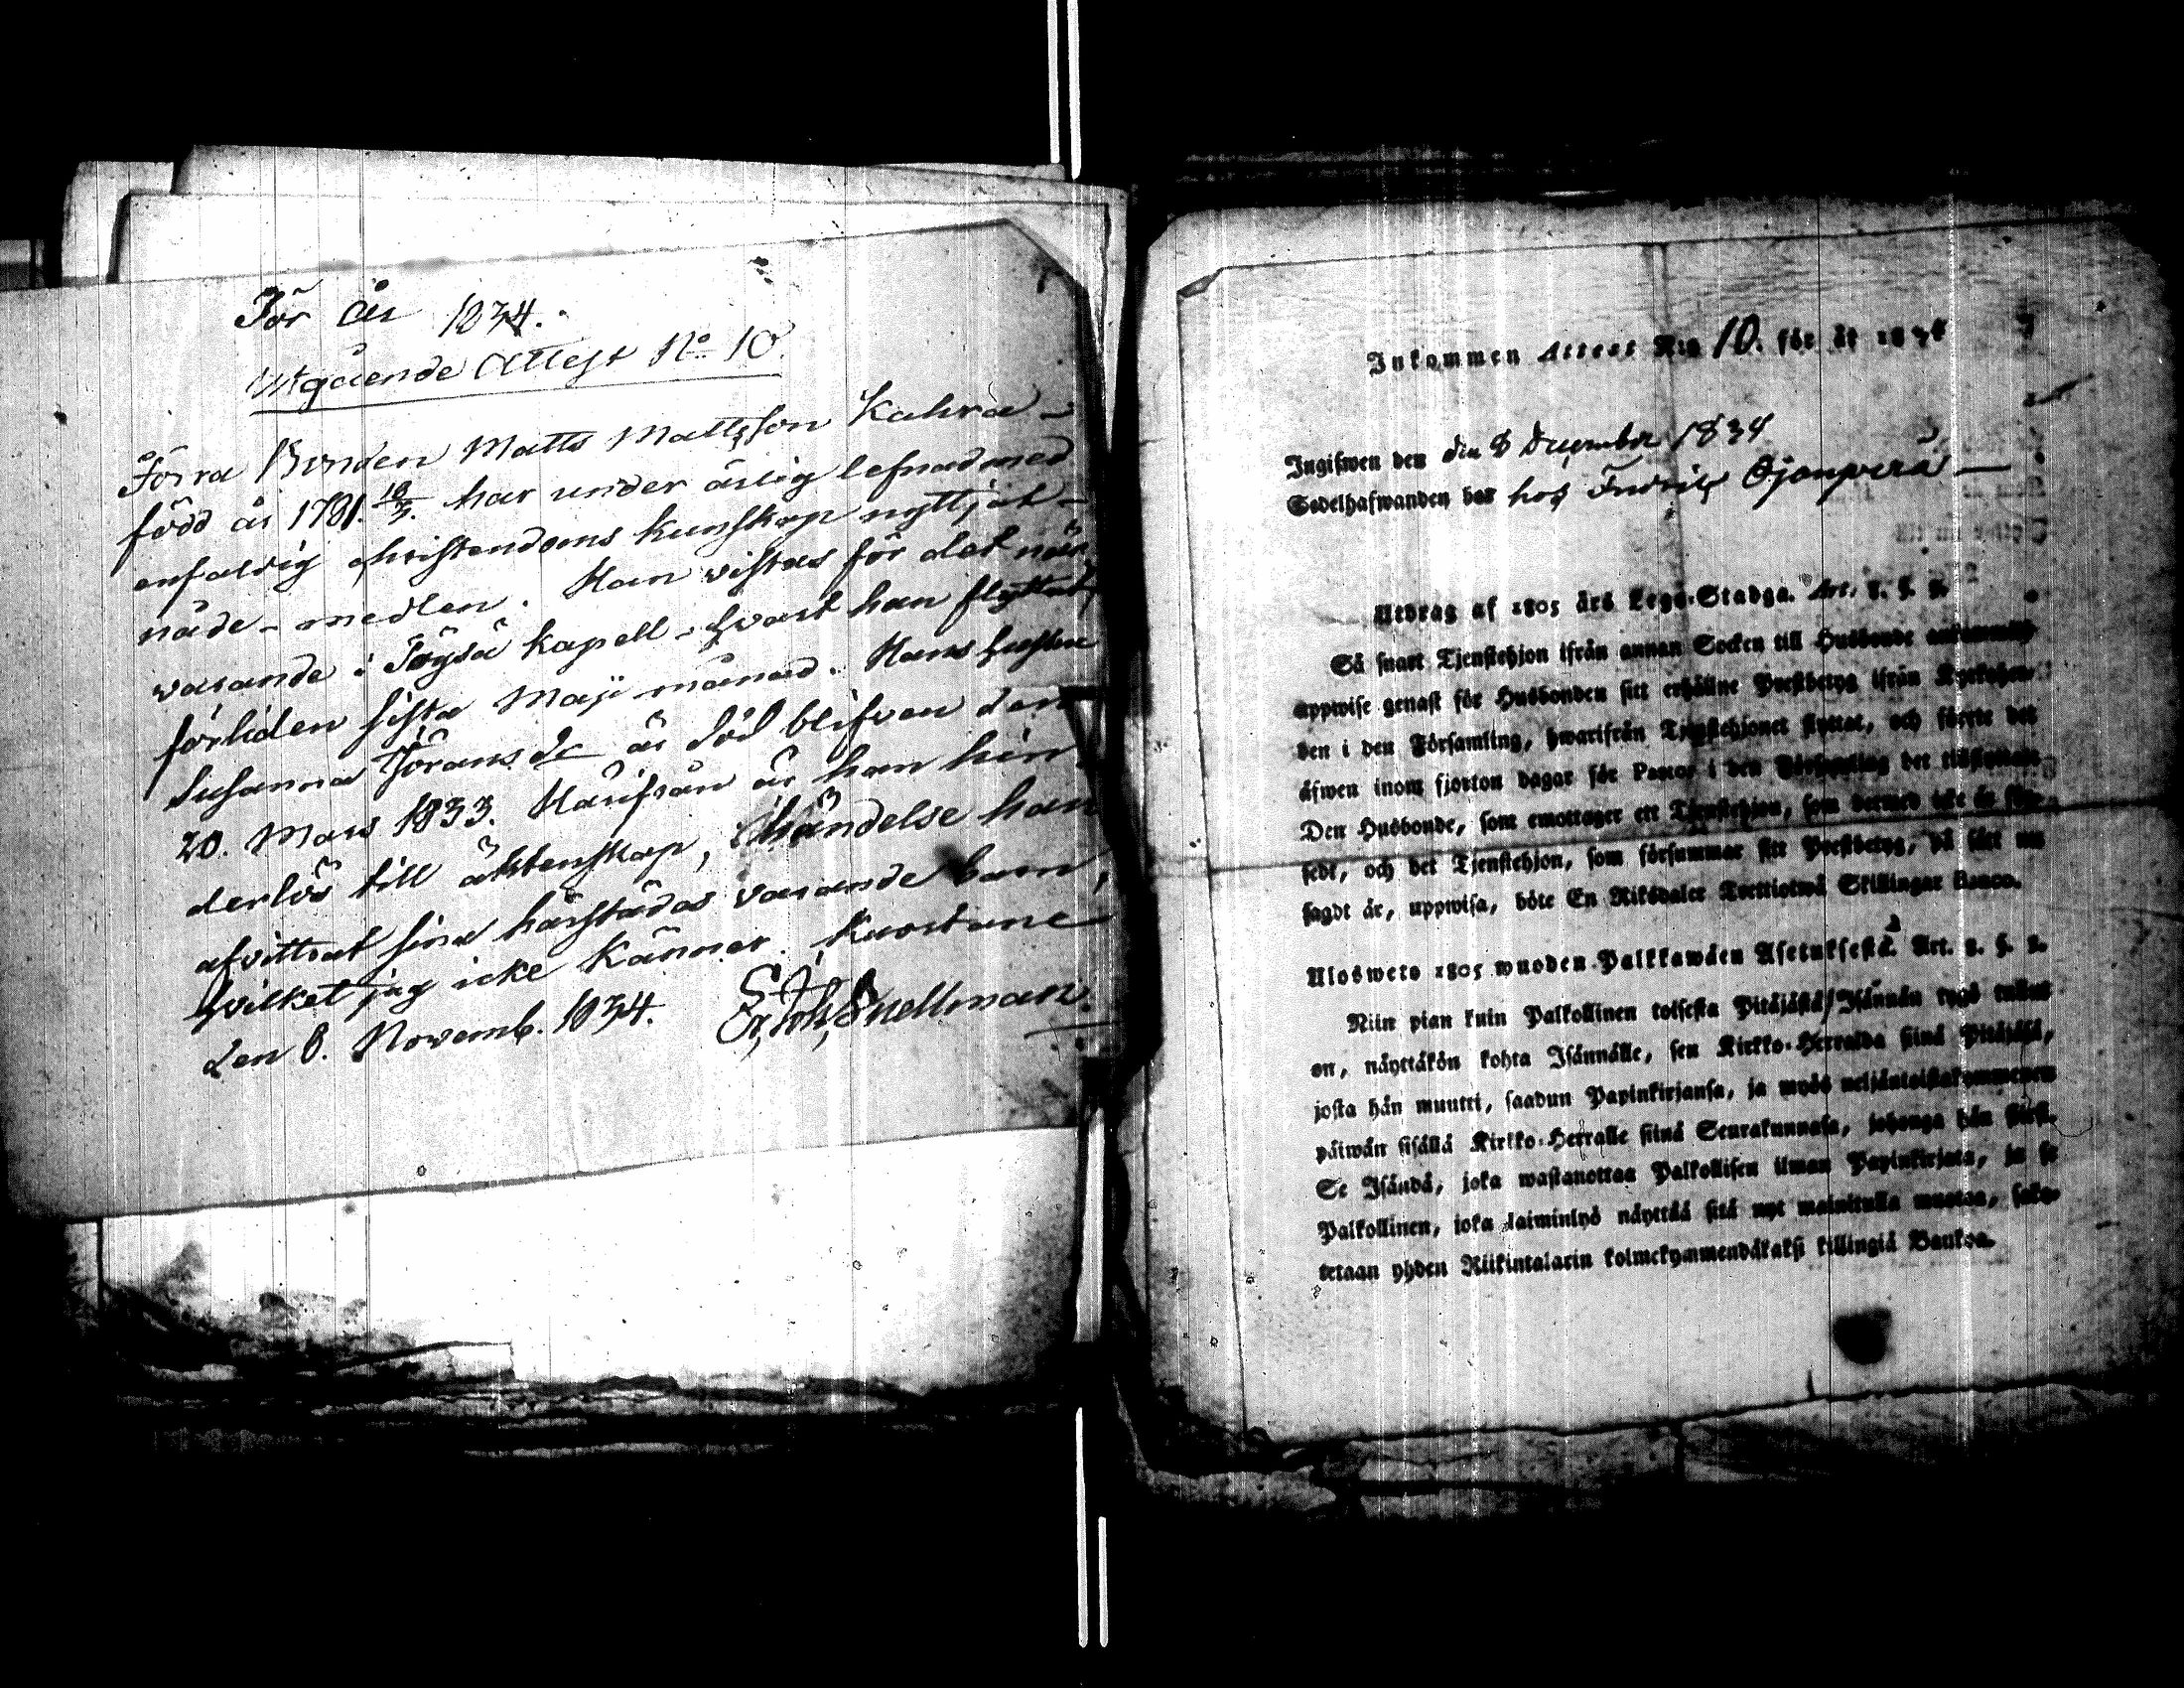 För år 1834.
Utgående Attest No 10.
Förra Bonden Matts Mattsson Kahra-
född år 1781. 18/3. har under ärlig lefnad med
enfaldig christendoms kunskap nyttjat
nåde-medlen. Han vistas för det när
varande i Töysä Kapell, hvart han flyttat
förliden sista Maji månad. Hans hustru
Susanna Jöransdr är död blifven den
20. Mars 1833. Härifrån är han hin-
derlös till äktenskap, i händelse han
afvittrat sina härstädes varande barn,
hvilket jag icke känner. Kuortane
den 8. Novemb. 1834. Er. Joh. Snellman.
Inkommen Attest N:o 10. för år 1834
Ingifwen den den 8 December 1834
Sedelhafwanden bor hos Fredric Ojanperä
Utdrag af 1805 års Lego-Stadga. Art. 8. §. 2.
Så snart Tjenstehjon ifrån annan Socken till Husbonde ankommit,
uppwise genast för Husbonden sitt erhållne Prestbetyg ifrån Kyrkoher-
den i den Församling, hwarifrån Tjenstehjonet flyttat, och förete det
äfwen inom fjorton dagar för Pastor i den Församling det tillflyttat.
Den Husbonde, som emottager ett Tjenstehjon, som dermed icke är för-
sedt, och det Tjenstehjon, som försummar sitt Prestbetyg, på sätt nu
sagdt är, uppwisa, böte En Riksdaler Trettiotwå Skillingar Banco.
Ulosweto 1805 wuoden Palkkawäen Asetuksesta. Art. 8. §. 2.
Niin pian kuin Palkollinen toisesta Pitäjästä Isännän tygö tullut
on, näyttäkön kohta Isännälle, sen Kirkko-Herralda siinä Pitäjäsä,
josta hän muutti, saadun Papinkirjansa, ja myös neljäntoistakymmenen
päiwän sisällä Kirkko-Herralle siinä Seurakunnasa, johonga hän siirsi.
Se Isändä, joka wastanottaa Palkollisen ilman Papinkirjata, ja se
Palkollinen, joka laiminlyö näyttää sitä nyt mainitulla muotoa, sako-
tetaan yhden Riikintalarin kolmekymmendäkaksi killingiä Bankoa.